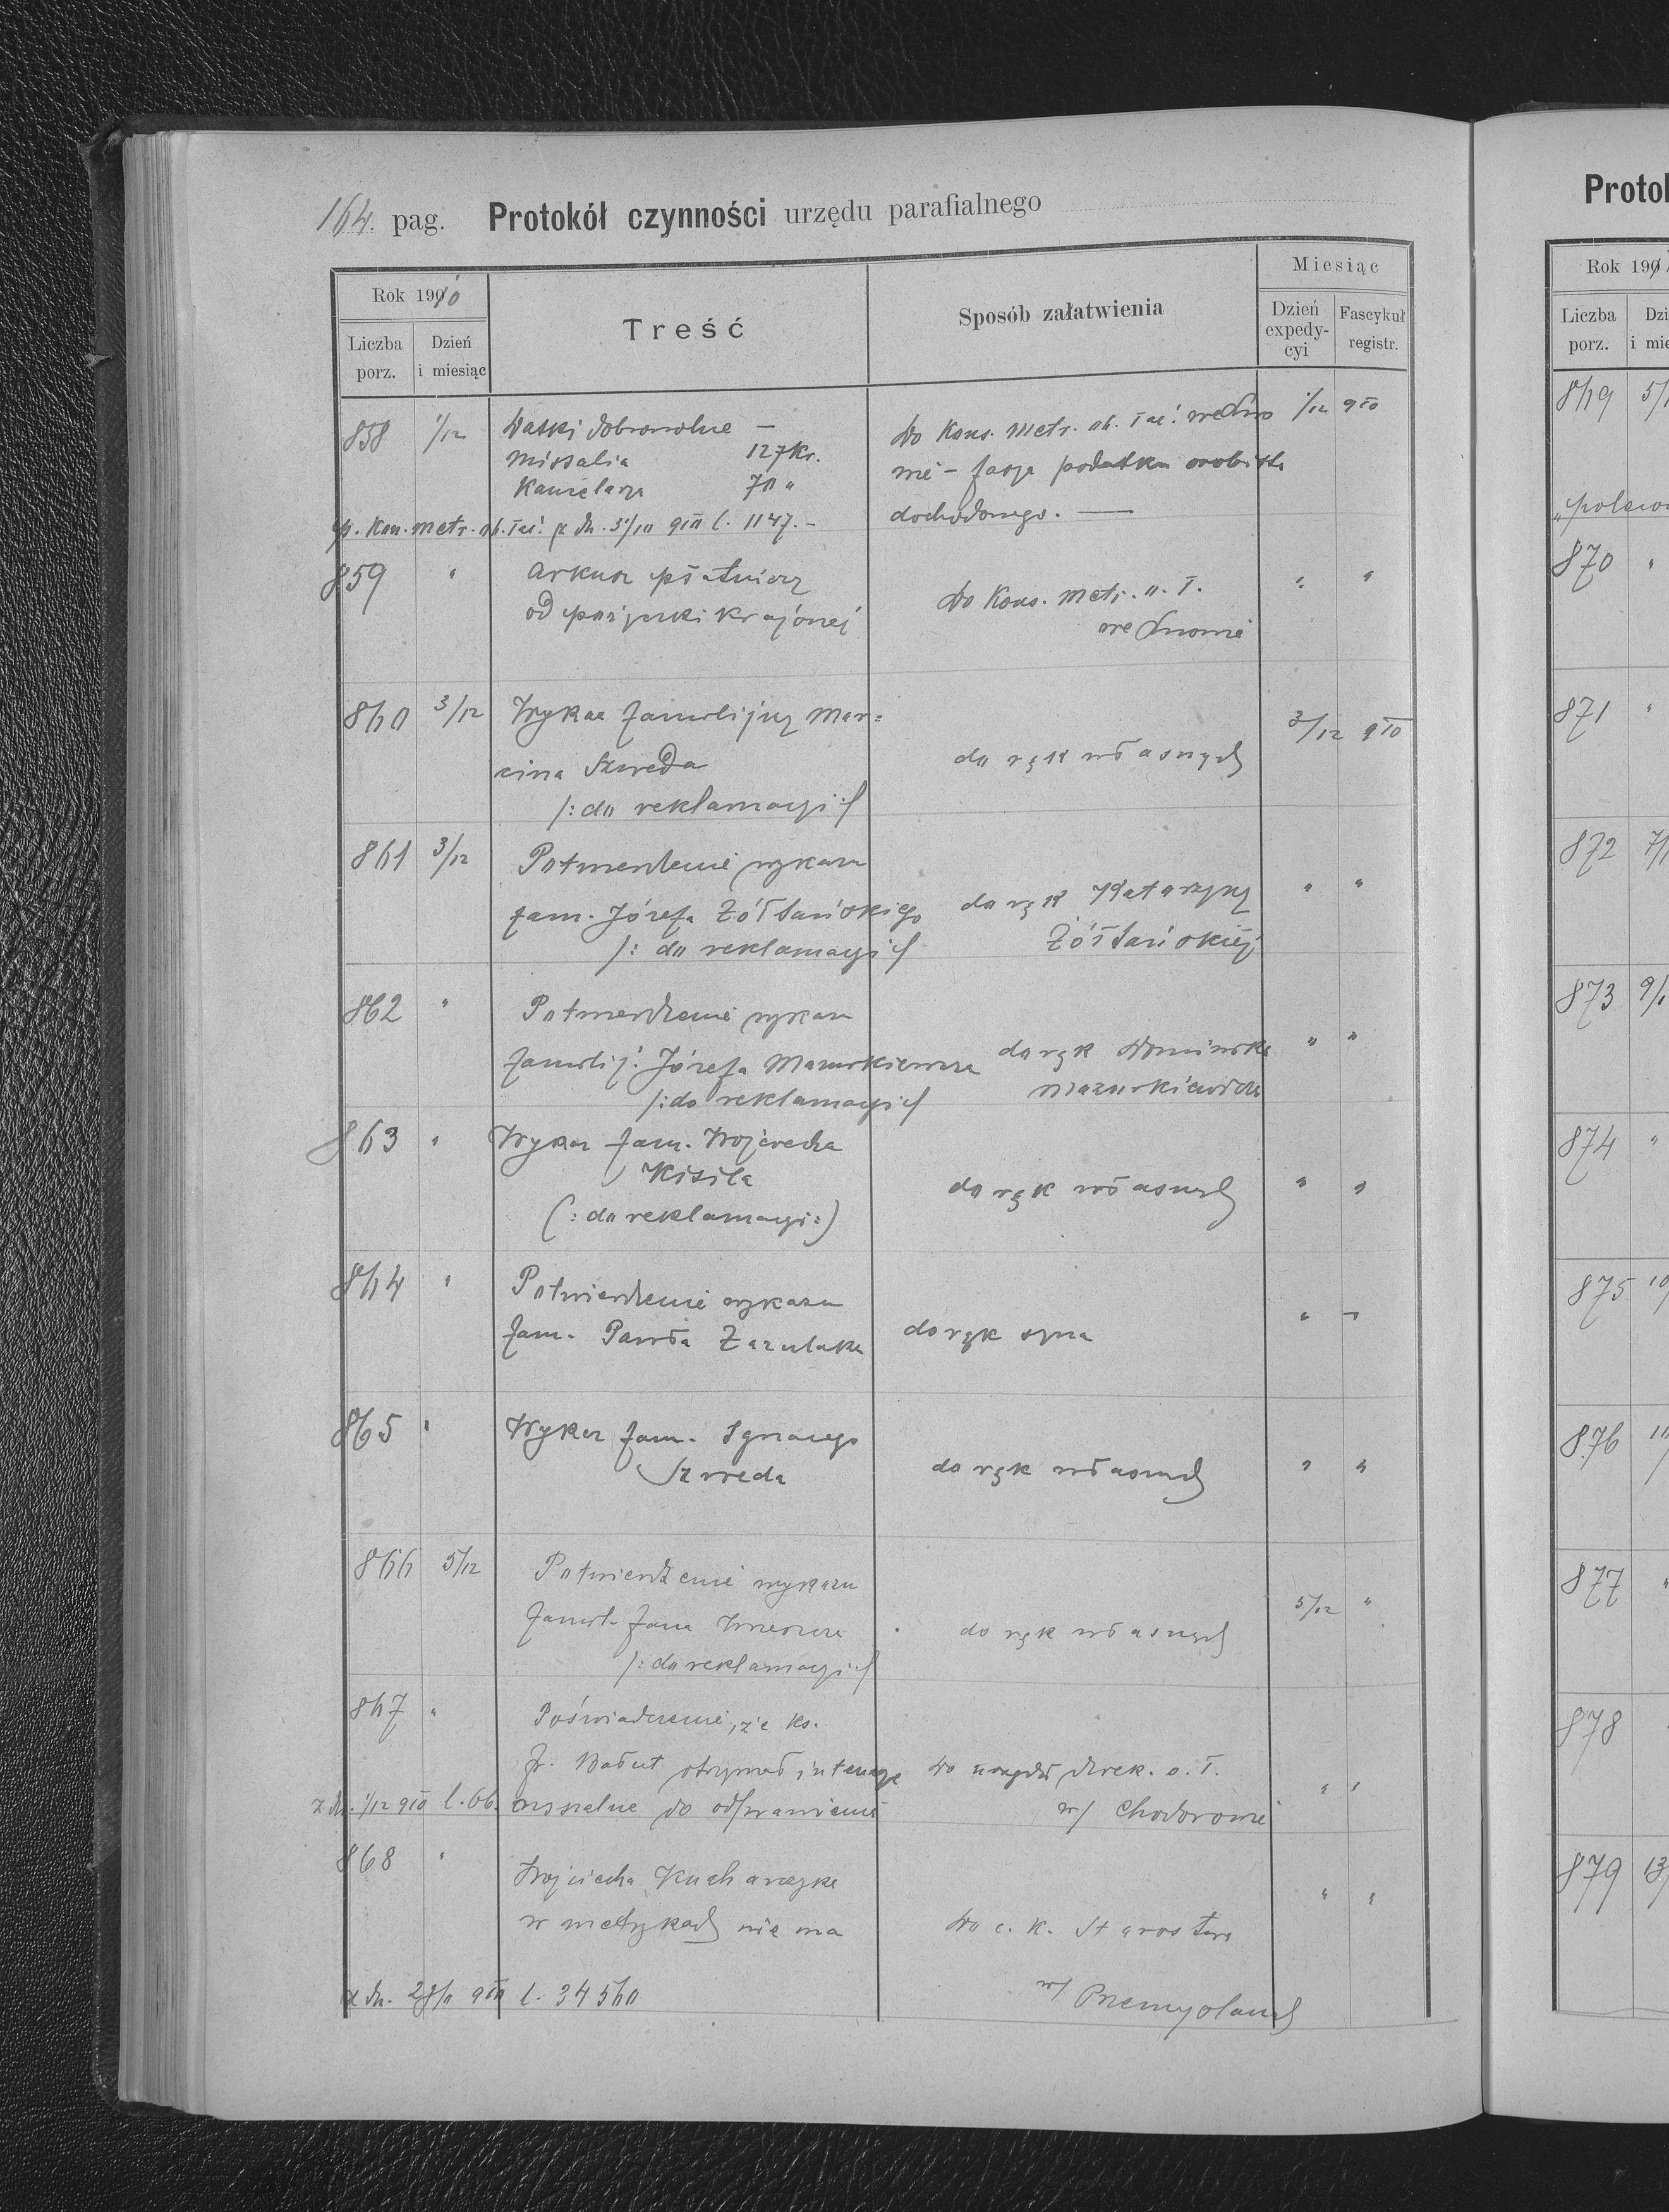 164. pag. Protokół czynności urzędu parafialnego
Rok 1910
Liczba porz.
Dzień i miesiąc
Treść
Sposób załatwienia
Miesiąc
Dzień expedycyi
Fascykuł registr.
858 1/12 Datki dobrowolne –
Missalia 127 kr.
Kancelarya 70 "
Do Kons. metr. ob. łać. we Lwo
wie – fasya podatku osobisto
dochodowego. —
1/12 910
p. Kon. metr. ob. łać. z dn. 3/10 910 l. 1147. –
859 " Arkusz płatniczy
od pożyczki krajowej
Do Kons. metr. o. ł.
we Lwowie
" "
860 3/12 Wykaz familijny Mar=
cina Szweda
/: do reklamacyi :/
do rąk własnych
3/12 910
861 3/12 Potwierdzenie wykazu
fam. Józefa Żółtańskiego
/: do reklamacyi :/
do rąk Katarzyny
Żółtańskiej
" "
862 " Potwierdzenie wykazu
familij. Józefa Mazurkiewicza
/: do reklamacyi :/
do rąk Dominika
Mazurkiewicza
" "
863 " Wykaz fam. Wojciecha
Kisila
(: do reklamacyi :)
do rąk własnych
" "
864 " Potwierdzenie wykazu
fam. Pawła Zazulaka
do rąk syna
" "
865 " Wykaz fam. Ignacego
Szweda
do rąk własnych
" "
866 5/12 Potwierdzenie wykazu
famil. Jana
/: do reklamacyi :/
do rąk własnych
5/12 "
867 " Poświadczenie, że ks.
fr. otrzymał intencye
z dn. 1/12 910 l. 66. mszalne do odprawienia
Do urzędu dziek. o. ł.
w/ Chodorowie
" "
868 " Wojciecha Kucharczyka
w metrykach nie ma
Do c. k. Starostwa
w/ Przemyślanach
" "
z dn. 28/11 910 l. 34560
Protok
Rok 191
Liczba porz.
Dzi
i mie
869 5/1
870 "
871 "
872 7/1
873 9/1
874 "
875 10/
876 11/
877 "
878
879 13/